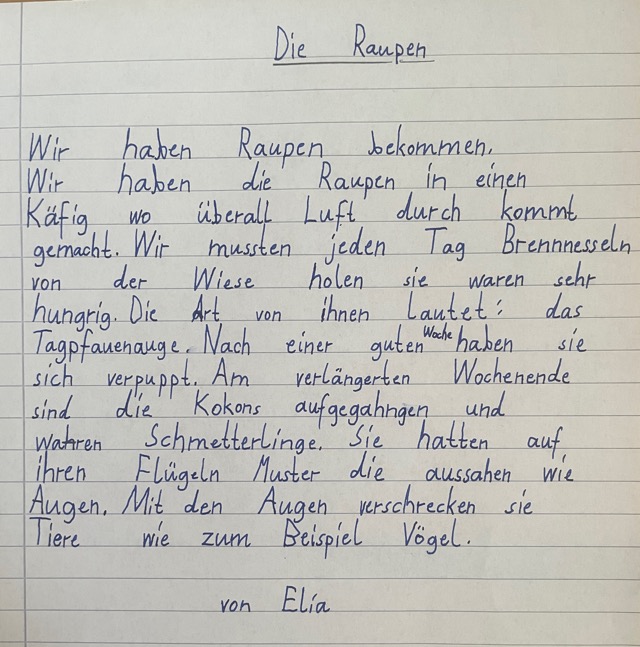 Die Raupen
Wir haben Raupen bekommen.
Wir haben die Raupen in einen
Käfig wo überall Luft durch kommt
gemacht. Wir mussten jeden Tag Brennnesseln
von der Wiese holen sie waren sehr
hungrig. Die Art von ihnen lautet: das
Tagpfauenauge. Nach einer guten Woche haben sie
sich verpuppt. Am verlängerten Wochenende
sind die Kokons aufgegahngen und
wahren Schmetterlinge. Sie hatten auf
ihren Flügeln Muster die aussahen wie
Augen. Mit den Augen verschrecken sie
Tiere wie zum Beispiel Vögel.
von Elia